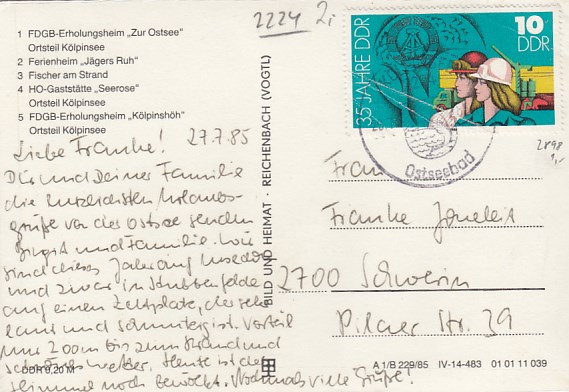 2224 2,-
1 FDGB-Erholungsheim „Zur Ostsee“
Ortsteil Kölpinsee
2 Ferienheim „Jägers Ruh“
3 Fischer am Strand
4 HO-Gaststätte „Seerose“
Ortsteil Kölpinsee
5 FDGB-Erholungsheim „Kölpinshöh“
Ortsteil Kölpinsee
27.7.85
Liebe Frauke!
Dir und Deiner Familie
die herzlichsten Urlaubs-
grüße von der Ostsee senden
Birgit und Familie. Wir
sind dieses Jahr auf Usedom
und zwar in Stubbenfelde
auf einen Zeltplatz, der sehr
laut und schmutzig ist. Vorteil
nur 200m bis zum Strand und
schönes Wetter. Heute ist der
Himmel noch bewölkt. Nochmals viele Grüße!
DDR 0,20 M
BILD UND HEIMAT · REICHENBACH (VOGTL)
35 JAHRE DDR
10
DDR
Ostseebad
2898
1,-
Frau
Frauke
2700 Schwerin
Pilaer Str. 39
A 1/B 229/85 IV-14-483 01 01 11 039